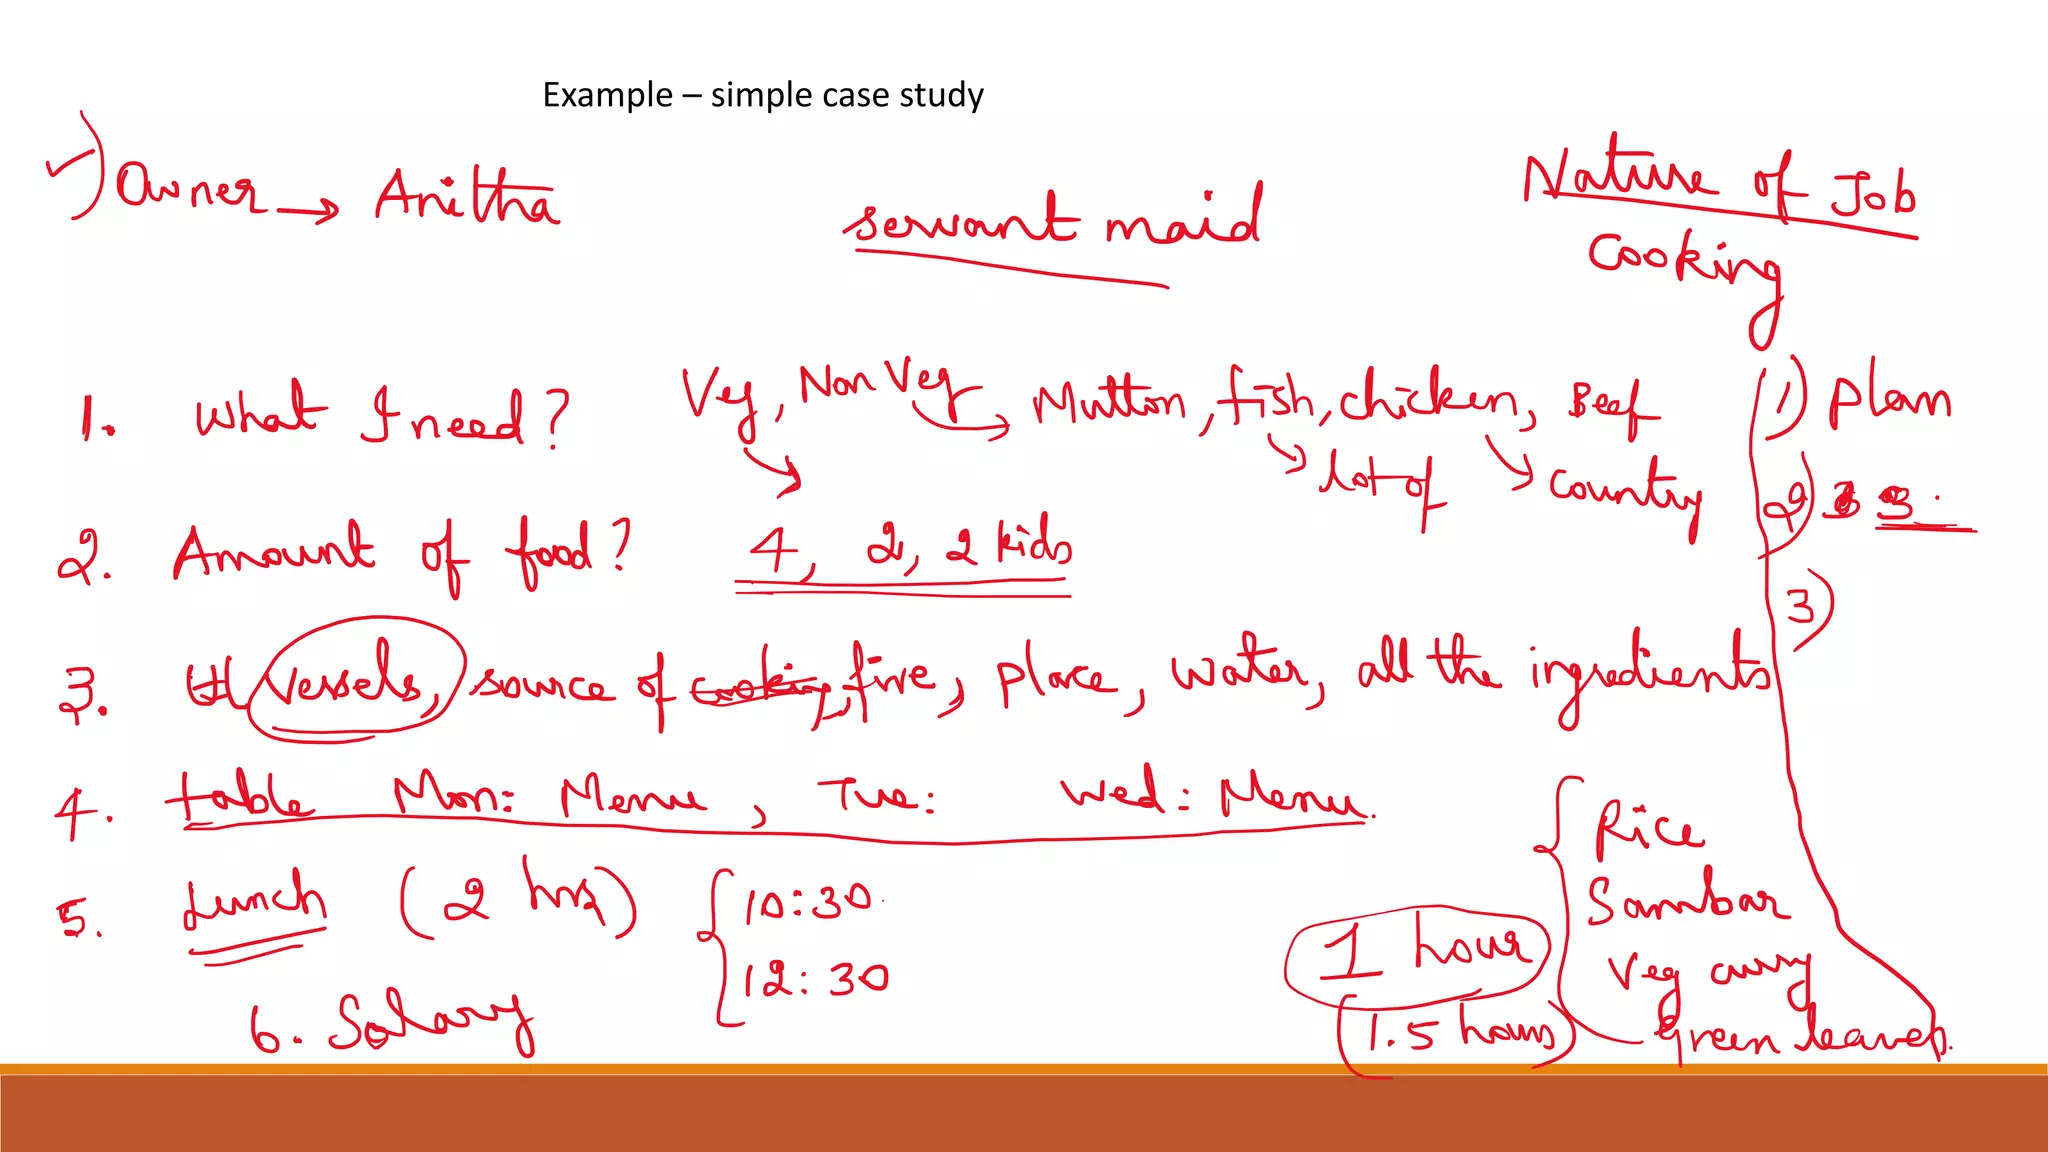 Example – simple case study
Owner → Anitha
servant maid
Nature of Job
Cooking
1. What I need? Veg, Non Veg → Mutton, fish, chicken, Beef
→ lot of → country
2. Amount of food? 4, 2, 2 kids
3. Vessels, source of cooking, fire, place, water, all the ingredients
4. table Mon: Menu, Tue: Wed: Menu.
5. Lunch (2 hrs) { 10:30
12:30
6. Salary
1 hour
(1.5 hours)
Rice
Sambar
Veg curry
Green leaves.
1) Plan
2) 3.
3)